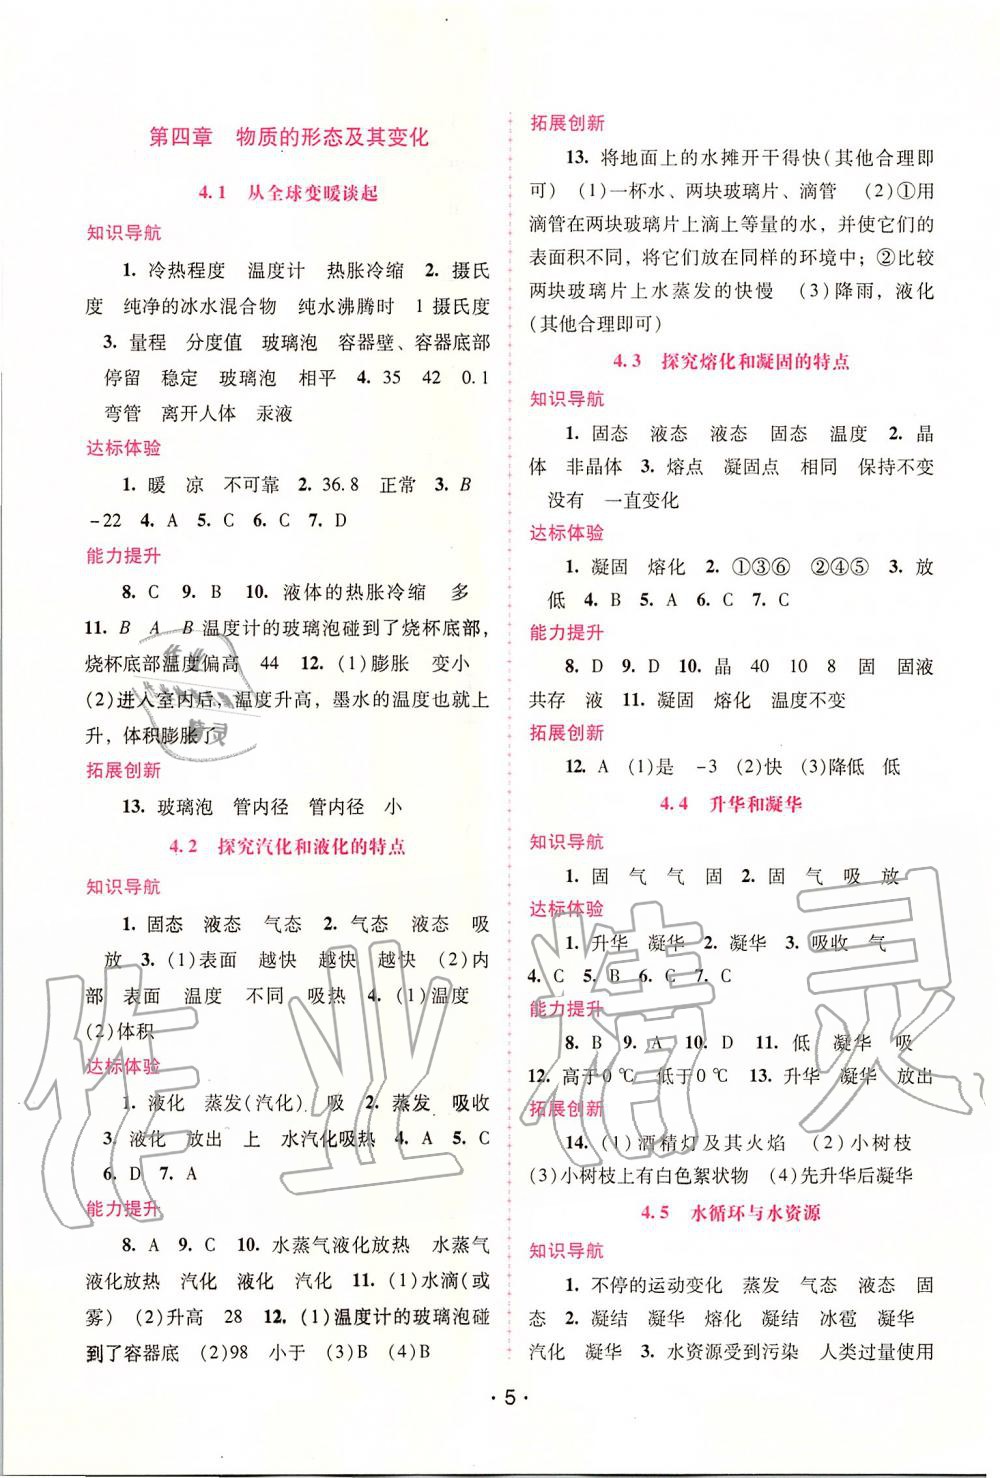 第四章 物质的形态及其变化
4.1 从全球变暖谈起
知识导航
1. 冷热程度 温度计 热胀冷缩 2. 摄氏
度 纯净的冰水混合物 纯水沸腾时 1 摄氏度
3. 量程 分度值 玻璃泡 容器壁、容器底部
停留 稳定 玻璃泡 相平 4. 35 42 0.1
弯管 离开人体 汞液
达标体验
1. 暖 凉 不可靠 2. 36.8 正常 3. B
-22 4. A 5. C 6. C 7. D
能力提升
8. C 9. B 10. 液体的热胀冷缩 多
11. B A B 温度计的玻璃泡碰到了烧杯底部,
烧杯底部温度偏高 44 12. (1)膨胀 变小
(2)进入室内后,温度升高,墨水的温度也就上
升,体积膨胀了
拓展创新
13. 玻璃泡 管内径 管内径 小
4.2 探究汽化和液化的特点
知识导航
1. 固态 液态 气态 2. 气态 液态 吸
放 3. (1)表面 越快 越快 越快 (2)内
部 表面 温度 不同 吸热 4. (1)温度
(2)体积
达标体验
1. 液化 蒸发(汽化) 吸 2. 蒸发 吸收
3. 液化 放出 上 水汽化吸热 4. A 5. C
6. D 7. A
能力提升
8. A 9. C 10. 水蒸气液化放热 水蒸气
液化放热 汽化 液化 汽化 11. (1)水滴(或
雾) (2)升高 28 12. (1)温度计的玻璃泡碰
到了容器底 (2)98 小于 (3)B (4)B
拓展创新
13. 将地面上的水摊开干得快(其他合理即
可) (1)一杯水、两块玻璃片、滴管 (2)①用
滴管在两块玻璃片上滴上等量的水,并使它们的
表面积不同,将它们放在同样的环境中;②比较
两块玻璃片上水蒸发的快慢 (3)降雨,液化
(其他合理即可)
4.3 探究熔化和凝固的特点
知识导航
1. 固态 液态 液态 固态 温度 2. 晶
体 非晶体 3. 熔点 凝固点 相同 保持不变
没有 一直变化
达标体验
1. 凝固 熔化 2. ①③⑥ ②④⑤ 3. 放
低 4. B 5. A 6. C 7. C
能力提升
8. D 9. D 10. 晶 40 10 8 固 固液
共存 液 11. 凝固 熔化 温度不变
拓展创新
12. A (1)是 -3 (2)快 (3)降低 低
4.4 升华和凝华
知识导航
1. 固 气 气 固 2. 固 气 吸 放
达标体验
1. 升华 凝华 2. 凝华 3. 吸收 气
4. C 5. B 6. C 7. C
能力提升
8. B 9. A 10. D 11. 低 凝华 吸
12. 高于0 ℃ 低于0 ℃ 13. 升华 凝华 放出
拓展创新
14. (1)酒精灯及其火焰 (2)小树枝
(3)小树枝上有白色絮状物 (4)先升华后凝华
4.5 水循环与水资源
知识导航
1. 不停的运动变化 蒸发 气态 液态 固
态 2. 凝结 凝华 熔化 凝结 冰雹 凝华
汽化 凝华 3. 水资源受到污染 人类过量使用
· 5 ·
作业精灵